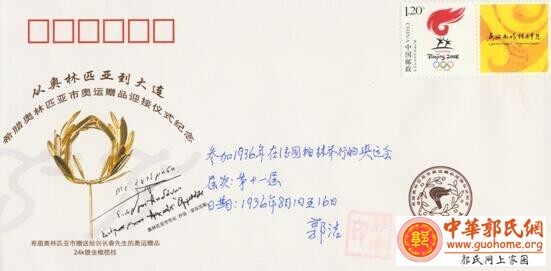 1.20元
CHINA
中国邮政
Beijing 2008
从奥林匹亚到大连
希腊奥林匹亚市奥运赠品迎接仪式纪念
参加1936年在法国柏林举行的奥运会
届次:第十一届
日期:1936年8月1日至16日
郭洁
郭洁
印
希腊奥林匹亚市赠送给刘长春先生的奥运赠品
24k镀金橄榄枝
中華郭氏網
www.guohome.org
郭氏网上家园